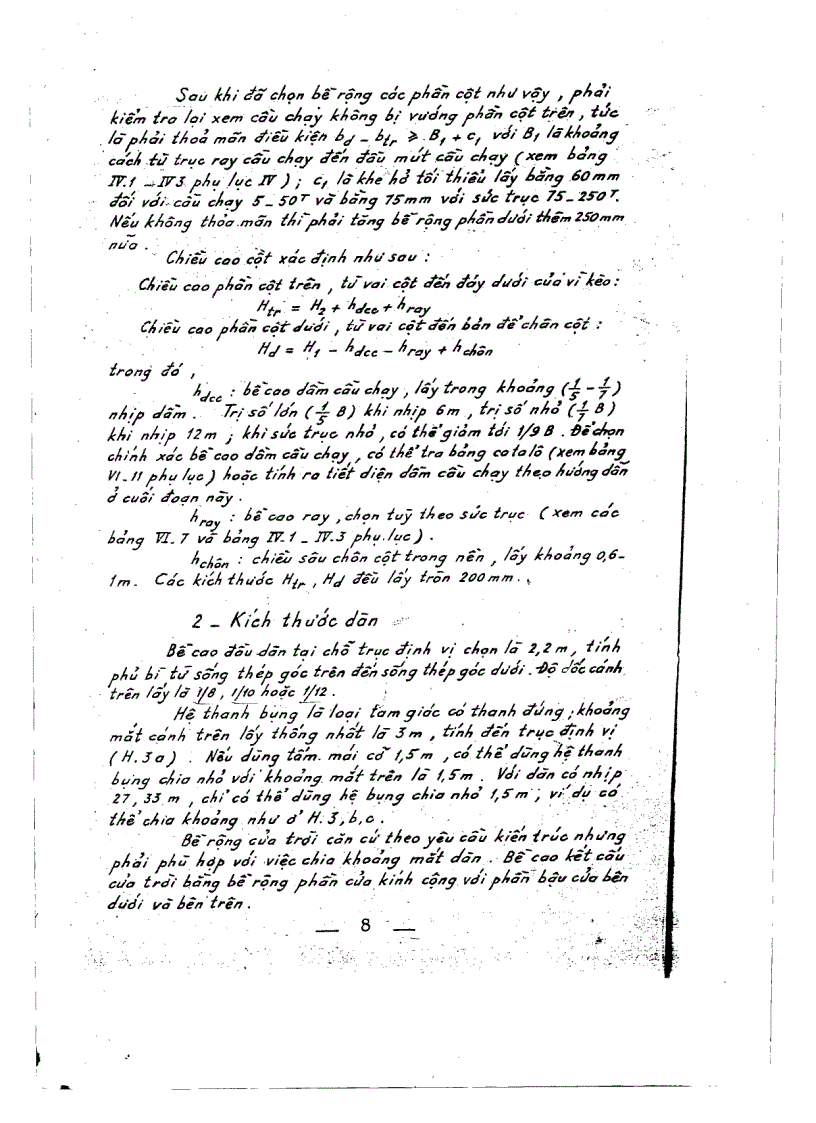 Sau khi đã chọn bề rộng các phần cột như vậy, phải
kiểm tra lại xem cầu chạy không bị vướng phần cột trên, tức
là phải thoả mãn điều kiện b_d - b_tr ≥ B_1 + c_1 với B_1 là khoảng
cách từ trục ray cầu chạy đến đầu mút cầu chạy (xem bảng
IV.1 - IV.3 phụ lục IV); c_1 là khe hở tối thiểu lấy bằng 60mm
đối với cầu chạy 5-50T và bằng 75mm với sức trục 75-250T.
Nếu không thỏa mãn thì phải tăng bề rộng phần dưới thêm 250mm
nữa.
Chiều cao cột xác định như sau:
Chiều cao phần cột trên, từ vai cột đến đáy dưới của vì kèo:
H_tr = H_2 + h_dcc + h_ray
Chiều cao phần cột dưới, từ vai cột đến bản đế chân cột:
H_d = H_1 - h_dcc - h_ray + h_chôn
trong đó,
h_dcc : bề cao dầm cầu chạy, lấy trong khoảng (1/5 - 1/7)
nhịp dầm. Trị số lớn (1/5 B) khi nhịp 6m, trị số nhỏ (1/7 B)
khi nhịp 12m; khi sức trục nhỏ, có thể giảm tới 1/9 B. Để chọn
chính xác bề cao dầm cầu chạy, có thể tra bảng catalô (xem bảng
VI-11 phụ lục) hoặc tính ra tiết diện dầm cầu chạy theo hướng dẫn
ở cuối đoạn này.
h_ray : bề cao ray, chọn tuỳ theo sức trục (xem các
bảng VI.7 và bảng IV.1 - IV.3 phụ lục).
h_chôn : chiều sâu chôn cột trong nền, lấy khoảng 0,6-
1m. Các kích thước H_tr, H_d đều lấy tròn 200mm.
2 - Kích thước dàn
Bề cao đầu dàn tại chỗ trục định vị chọn là 2,2m, tính
phủ bì từ sống thép góc trên đến sống thép góc dưới. Độ dốc cánh
trên lấy là 1/8, 1/10 hoặc 1/12.
Hệ thanh bụng là loại tam giác có thanh đứng; khoảng
mắt cánh trên lấy thống nhất là 3m, tính đến trục định vị
(H.3a). Nếu dùng tấm mái cỡ 1,5m, có thể dùng hệ thanh
bụng chia nhỏ với khoảng mắt trên là 1,5m. Với dàn có nhịp
27, 33 m, chỉ có thể dùng hệ bụng chia nhỏ 1,5m, ví dụ có
thể chia khoảng như ở H.3,b,c.
Bề rộng cửa trời căn cứ theo yêu cầu kiến trúc nhưng
phải phù hợp với việc chia khoảng mắt dàn. Bề cao kết cấu
cửa trời bằng bề rộng phần cửa kính cộng với phần bậu cửa bên
dưới và bên trên.
— 8 —